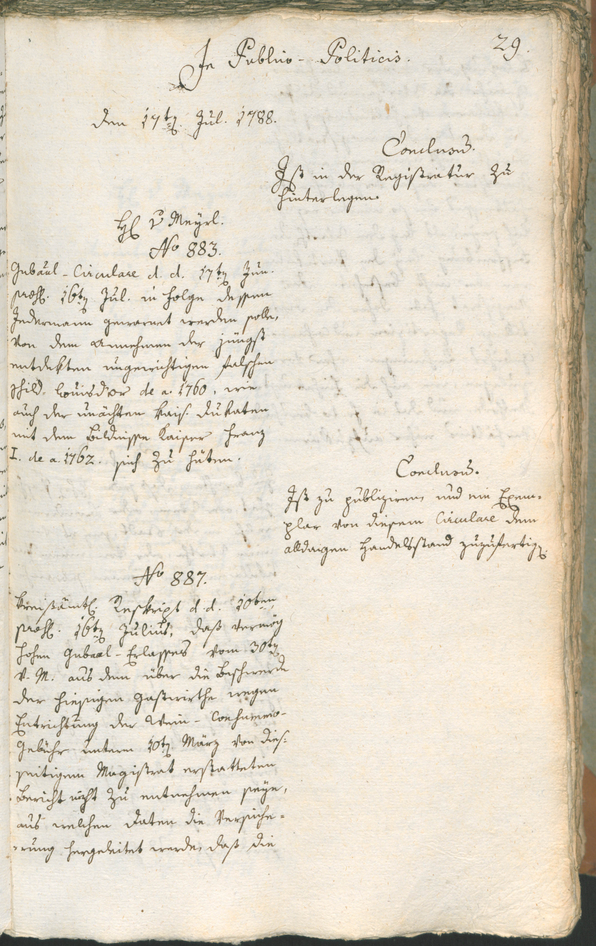 29.
In Publico-Politicis.
den 17ten Jul. 1788.
Conclusum.
Ist in der Registratur zu
hinterlegen.
H. v Meyrl.
No 883.
Gubãal-Circulare d. d. 17ten Jun.
prõs. 16ten Jul. in Folge dessen
Jedermann gewarnet werden solle,
von dem Annehmen der jüngst
entdekten ungewichtigen falschen
Schild-Louisd'or de a. 1760. wie
auch der unächten kais. Dukaten
mit dem Bildnisse Kaiser Franz
I. de a. 1762. sich zu hüten.
Conclusum.
Ist zu publiziren, und ein Exem-
plar von diesem Circulare dem
alldaigen Handelsstand zuzufertig.
No 887.
Kreisämtl. Reskript d. d. 10ten
prõs. 16ten Julius, daß vermög
hohen Gubãal-Erlasses vom 30ten
v. M. aus dem über die Beschwerde
der hiesigen Gastwirthe wegen
Entrichtung der Wein-Consumo-
Gebühr unterm 10ten März von dies-
seitigem Magistrat erstatteten
Bericht nicht zu entnehmen seye,
aus welchen Daten die Versiche-
rung hergeleitet werde, daß die